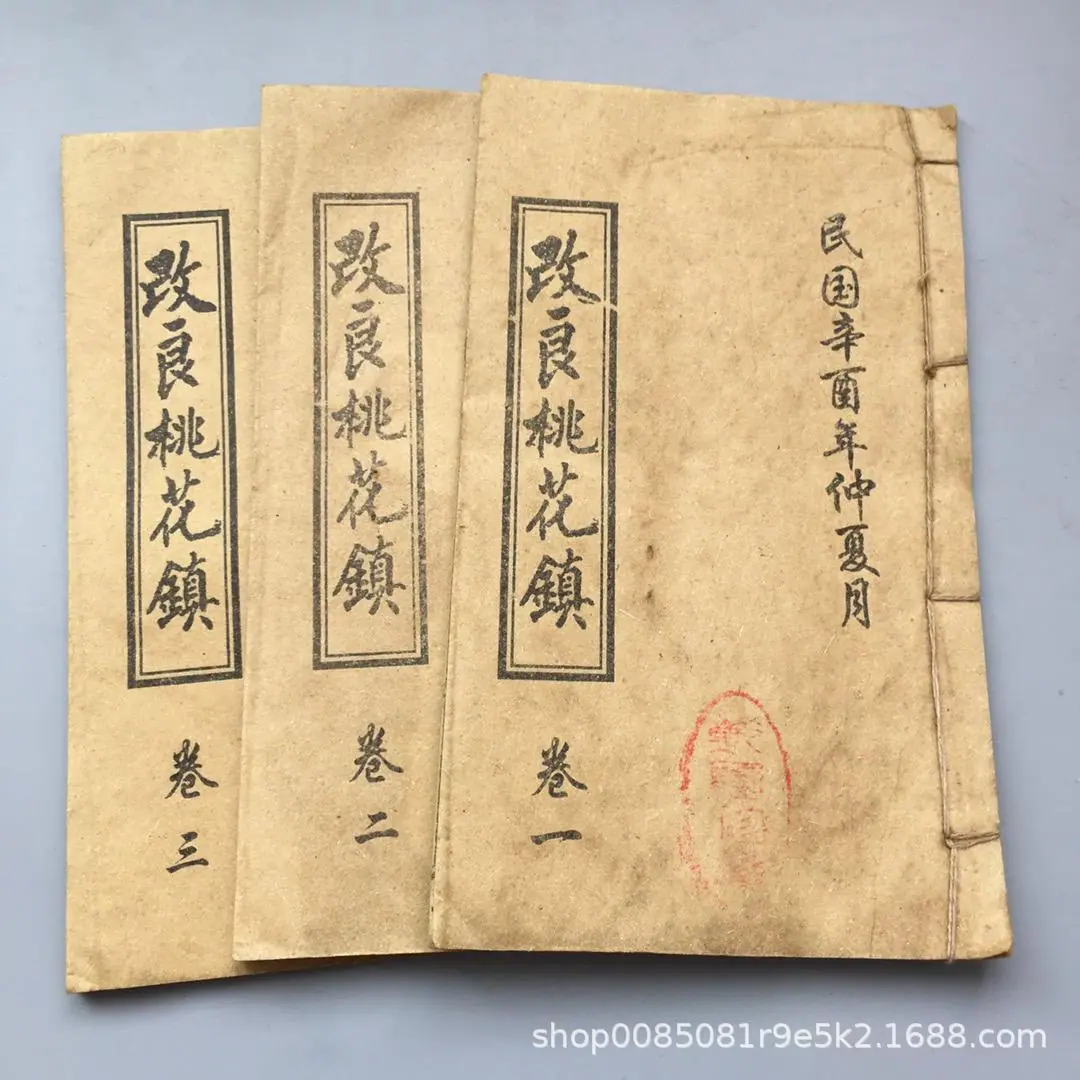 民国辛酉年仲夏月
改良桃花鎮
卷一
改良桃花鎮
卷二
改良桃花鎮
卷三
shop0085081r9e5k2.1688.com